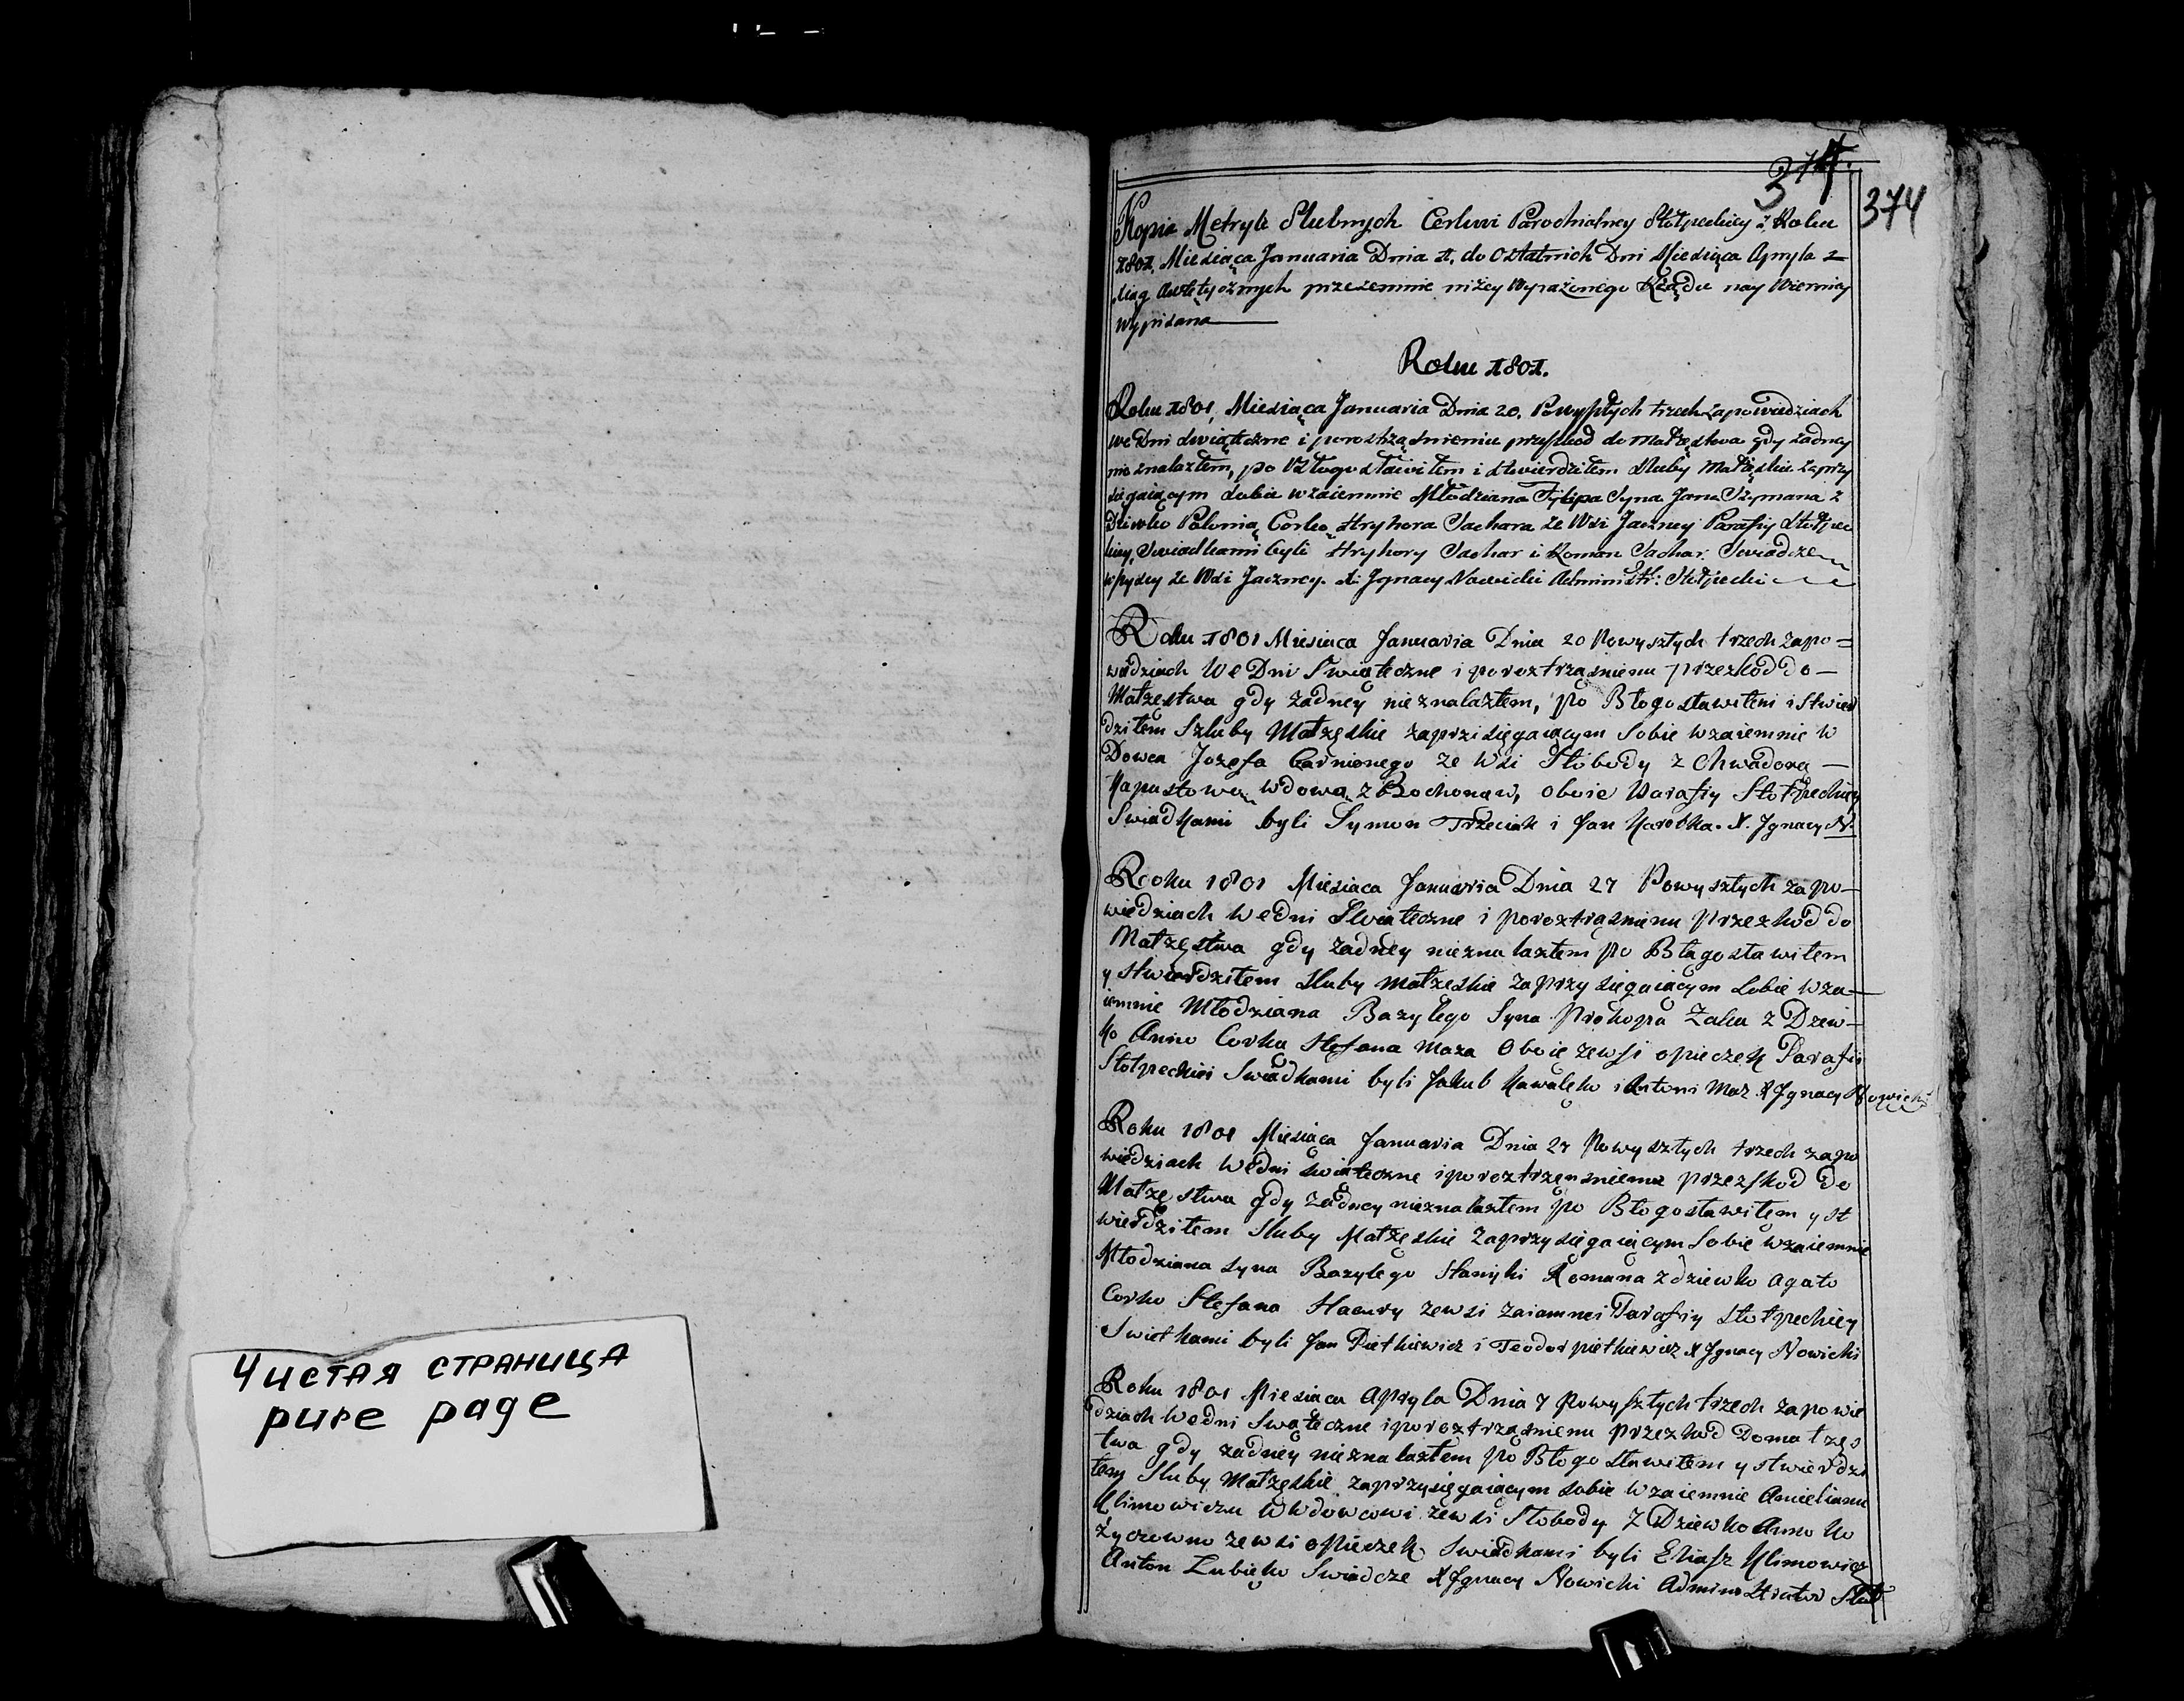 Чистая страница
pure page
374.
374
Kopia Metryk Slubnych Cerkwi Parochialney Stołpeckiey z Roku
1801. Miesiąca Januaria Dnia 1. do Ostatnich Dni Miesiąca Apryla z
xiąg Awtętycznych przezemnie niżey Wyrażonego Xiądza nay Wierniey
wypisana
Roku 1801.
Roku 1801, Miesiąca Januaria Dnia 20. Powyszłych trzech zapowiedziach
we Dni swiąteczne i porostrząsnieniu przeszkod do małzęstwa gdy żadney
nie znalazłem, po błogosławiłem i stwierdziłem sluby małżęskie zaprzy
sięgaiącym sobie wzaiemnie Młodziana Fylipa Syna Jana Szymana z
Dziewko Palonią Corko Hryhora Sachara ze Wsi Jaczney Parafiy Stołpec
kiey Swiadkami byli Hryhory Sachar i Roman Sachar. Swiadcze
wszyscy ze Wsi Jaczney. X. Jgnacy Nawicki Administr: Stołpecki
Roku 1801 Miesiaca Januaria Dnia 20 Powyszłych trzech zapo=
wiedziach We Dni Swiąteczne i poroztrząsnieniu przezkod do
Małzęstwa gdy żadney nieznalazłem, po Błogosławiłem i stwier
dziłem Szluby Małzęskie zaprzisięgaiącym Sobie wzaiemnie W
Dowca Jozefa ze Wsi Słobody z Chwadorą
Kapustową wdową z Bochonaw, oboie Parafiy Stołpeckiey
Swiadkami byli Symon Trzeciak i Jan Karotka. X. Jgnacy N.
Rooku 1801 Miesiaca Januaria Dnia 27 Powyszłych zapo
wiedziach wedni Swiateczne i poroztrasnieniu przezkod do
Małzęstwa gdy żadney nieznalazłem po Błagosławiłem
y stwierdziłem sluby małzeskie zaprzysiegaiącym sobie wza
iemnie Młodziana Bazylego Syna Prokopa Zaka z Dziew
ko Anno Corka Stefana Maza Oboie zewsi opieczek Parafii
Stołpeckiei Swiadkami byli Jakub Kawalęko i Antoni Maz X Jgnacy Nowicki
Roku 1801 Miesiąca Januaria Dnia 27 Powyszłych trzech zapo
wiedziach wedni swiateczne i poroztrzensnieniu przeszkod do
Małzęstwa gdy żadney nieznalazłem po Błogosławiłem y st
wierdziłem sluby Małzęskie zaprzysięgaiącym Sobie wzaiemnie
Młodziana syna Bazylego Romana z dziewko Agato
Corko Stefana zewsi zaiamnei Parafiy Stołpeckiey
Swietkami byli Jan Pietkiewicz i Teodor pietkiewicz X Jgnacy Nowicki
Roku 1801 Miesiaca Apryla Dnia 7 powyszłych trzech zapowie
dziach wedni Swąteczne i poroztrząsnieniu przezkod Domałzęs
twa gdy żadney nieznalazłem po Błogosławiłem y stwierdzi
łem Sluby Małzęskie zaprzysięgaiącym sobie wzaiemnie
Klimowiczu Wdowcowi zewsi Słobody z Dziewko Anno Ko
życzowno zewsi opieczek Swiadkami byli Eliasz Klimowicz
Anton Zubieko Swiadcze X Jgnacy Nowicki Administrator